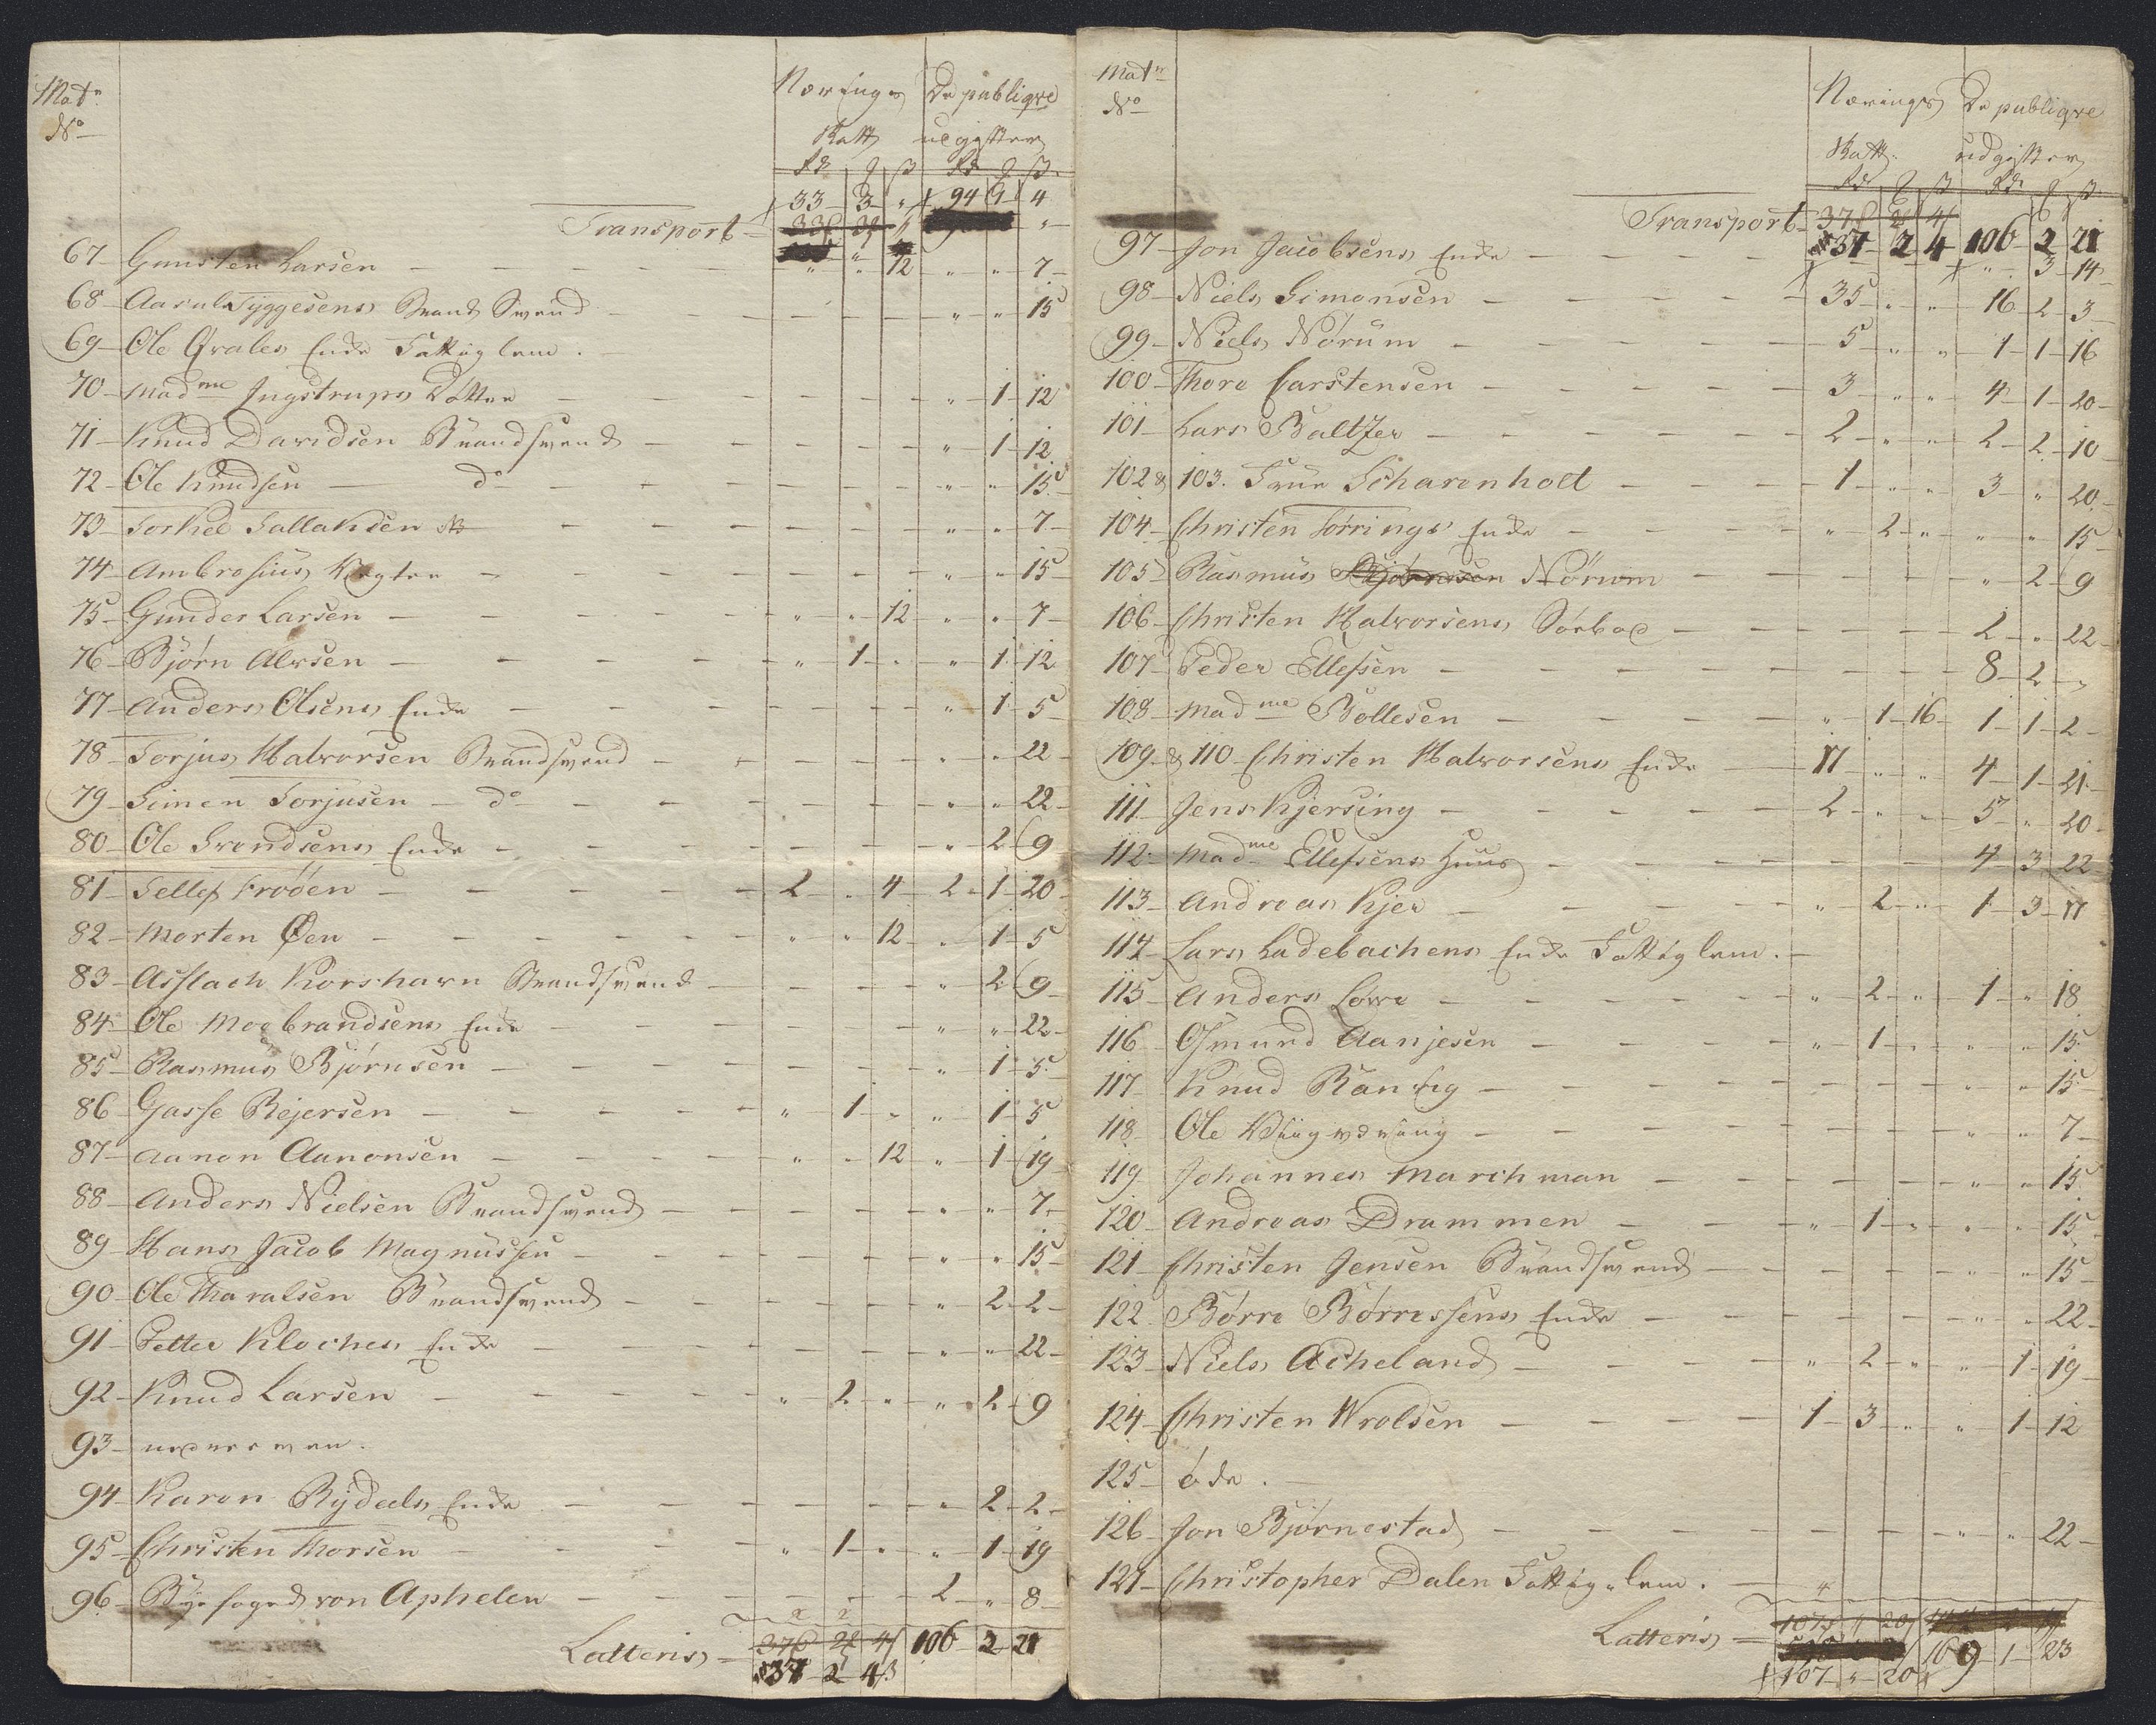 Matr
No
Nærings De publiqve
Skatt udgifter
Rd ₰ ß Rd ₰ ß
33 3 " 94 4
Transport
67 Gunsten Larsen " " 12 " " 7
68 Aasul Tyggesens " " 15
69 Ole Qvales Enke Fattiglem.
70 Madme Ingstrups Datter " 1 12
71 Knud Davidsen Brandsvend " 1 12
72 Ole Knudsen do " " 15
73 Torkel Tallaksen " " 7
74 Ambrosius Vegter " " 15
75 Gunder Larsen " " 12 " " 7
76 Bjørn Alvsen " 1 " " 1 12
77 Anders Olsens Enke " 1 5
78 Torjus Halvorsen Brandsvend " " 22
79 Simen Torjusen do " " 22
80 Ole Trondsens Enke " 2 9
81 Tellef Froøen 2 " 4 2 1 20
82 Morten Øen " " 12 " 1 5
83 Asflach Korshavn Brandsvend " 2 9
84 Ole Moebrandsens Enke " " 22
85 Rasmus Bjørnsen " 1 5
86 Gasse Rejersen " 1 " " 1 5
87 Aanon Aanonsen " " 12 " 1 19
88 Anders Nielsen Brandsvend " " 7
89 Hans Jacob Magnussen " " 15
90 Ole Tharalsen Brandsvend " 2 2
91 Petter Kloches Enke " " 22
92 Knud Larsen " 2 " " 2 9
93
94 Karen Rydeels Enke " 2 2
95 Christen Thorsen " 1 " " 1 19
96 Byefoged von Aphelen 2 " 8
Latteris 106 2 21
37 2 4
Matr
No
Nærings De publiqve
Skatt udgifter
Rd ₰ ß Rd ₰ ß
Transport 37 2 4 106 2 21
97 Jon Jacobsens Enke " 3 14
98 Niels Simonsen 35 " " 16 2 3
99 Niels Nørum 5 " " 1 1 16
100 Thore Carstensen 3 " " 4 1 20
101 Lars Baltzer 2 " " 2 2 10
102 & 103. Frue Scharenholt 1 " " 3 " 20
104 Christen Tørrings Enke " 2 " " " 15
105 Rasmus Bjørnsen Nørum " 2 9
106 Christen Halvorsens Sørboe 2 " 22
107 Peder Ellefsen 8 2 "
108 Madme Bollesen " 1 16 1 1 2
109 & 110 Christen Halvorsens Enke 11 " " 4 1 21
111 Jens Kjersing 2 " " 5 " 20
112 Madme Ellefsens Huus 4 3 22
113 Andreas Kjer " 2 " 1 3 11
114 Lars Ladebachens Enke Fattiglem.
115 Anders Løvre " 2 " 1 " 18
116 Osmund Aanjesen " 1 " " " 15
117 Knud Rantig " " 15
118 Ole " " 7
119 Johannes Marchman " " 15
120 Andreas Drammen " 1 " " " 15
121 Christen Jensen Brandsvend " " 15
122 Børre Børresens Enke " " 22
123 Niels Acheland " 2 " " 1 19
124 Christen Wrolsen 1 3 " " 1 12
125 øde.
126 Jon Bjørnestad " " 22
127 Christopher Dalen Fattiglem.
Latteris 169 1 23
107 " 20